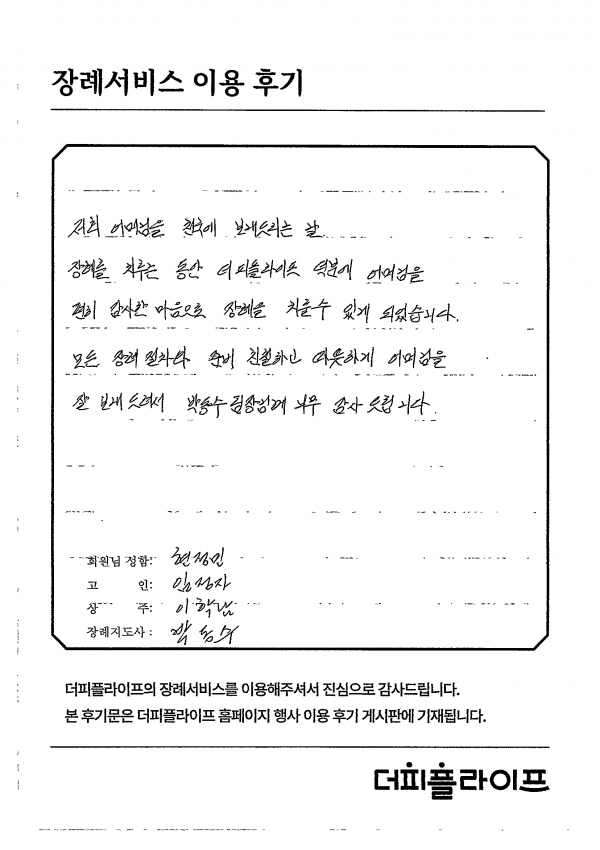 장례서비스 이용 후기
저희 어머님을 천국에 보내드리는 날
장례를 치루는 동안 더피플라이프 덕분에 어머님을
편히 감사한 마음으로 장례를 치룰수 있게 되었습니다.
모든 장례 절차와 준비 친절하고 따뜻하게 어머님을
잘 보내 드려서 박동수팀장님께 너무 감사 드립니다.
회원님 성함: 현정민
고 인: 임정자
상 주: 이학남
장례지도사 : 박동수
더피플라이프의 장례서비스를 이용해주셔서 진심으로 감사드립니다.
본 후기문은 더피플라이프 홈페이지 행사 이용 후기 게시판에 기재됩니다.
더피플라이프